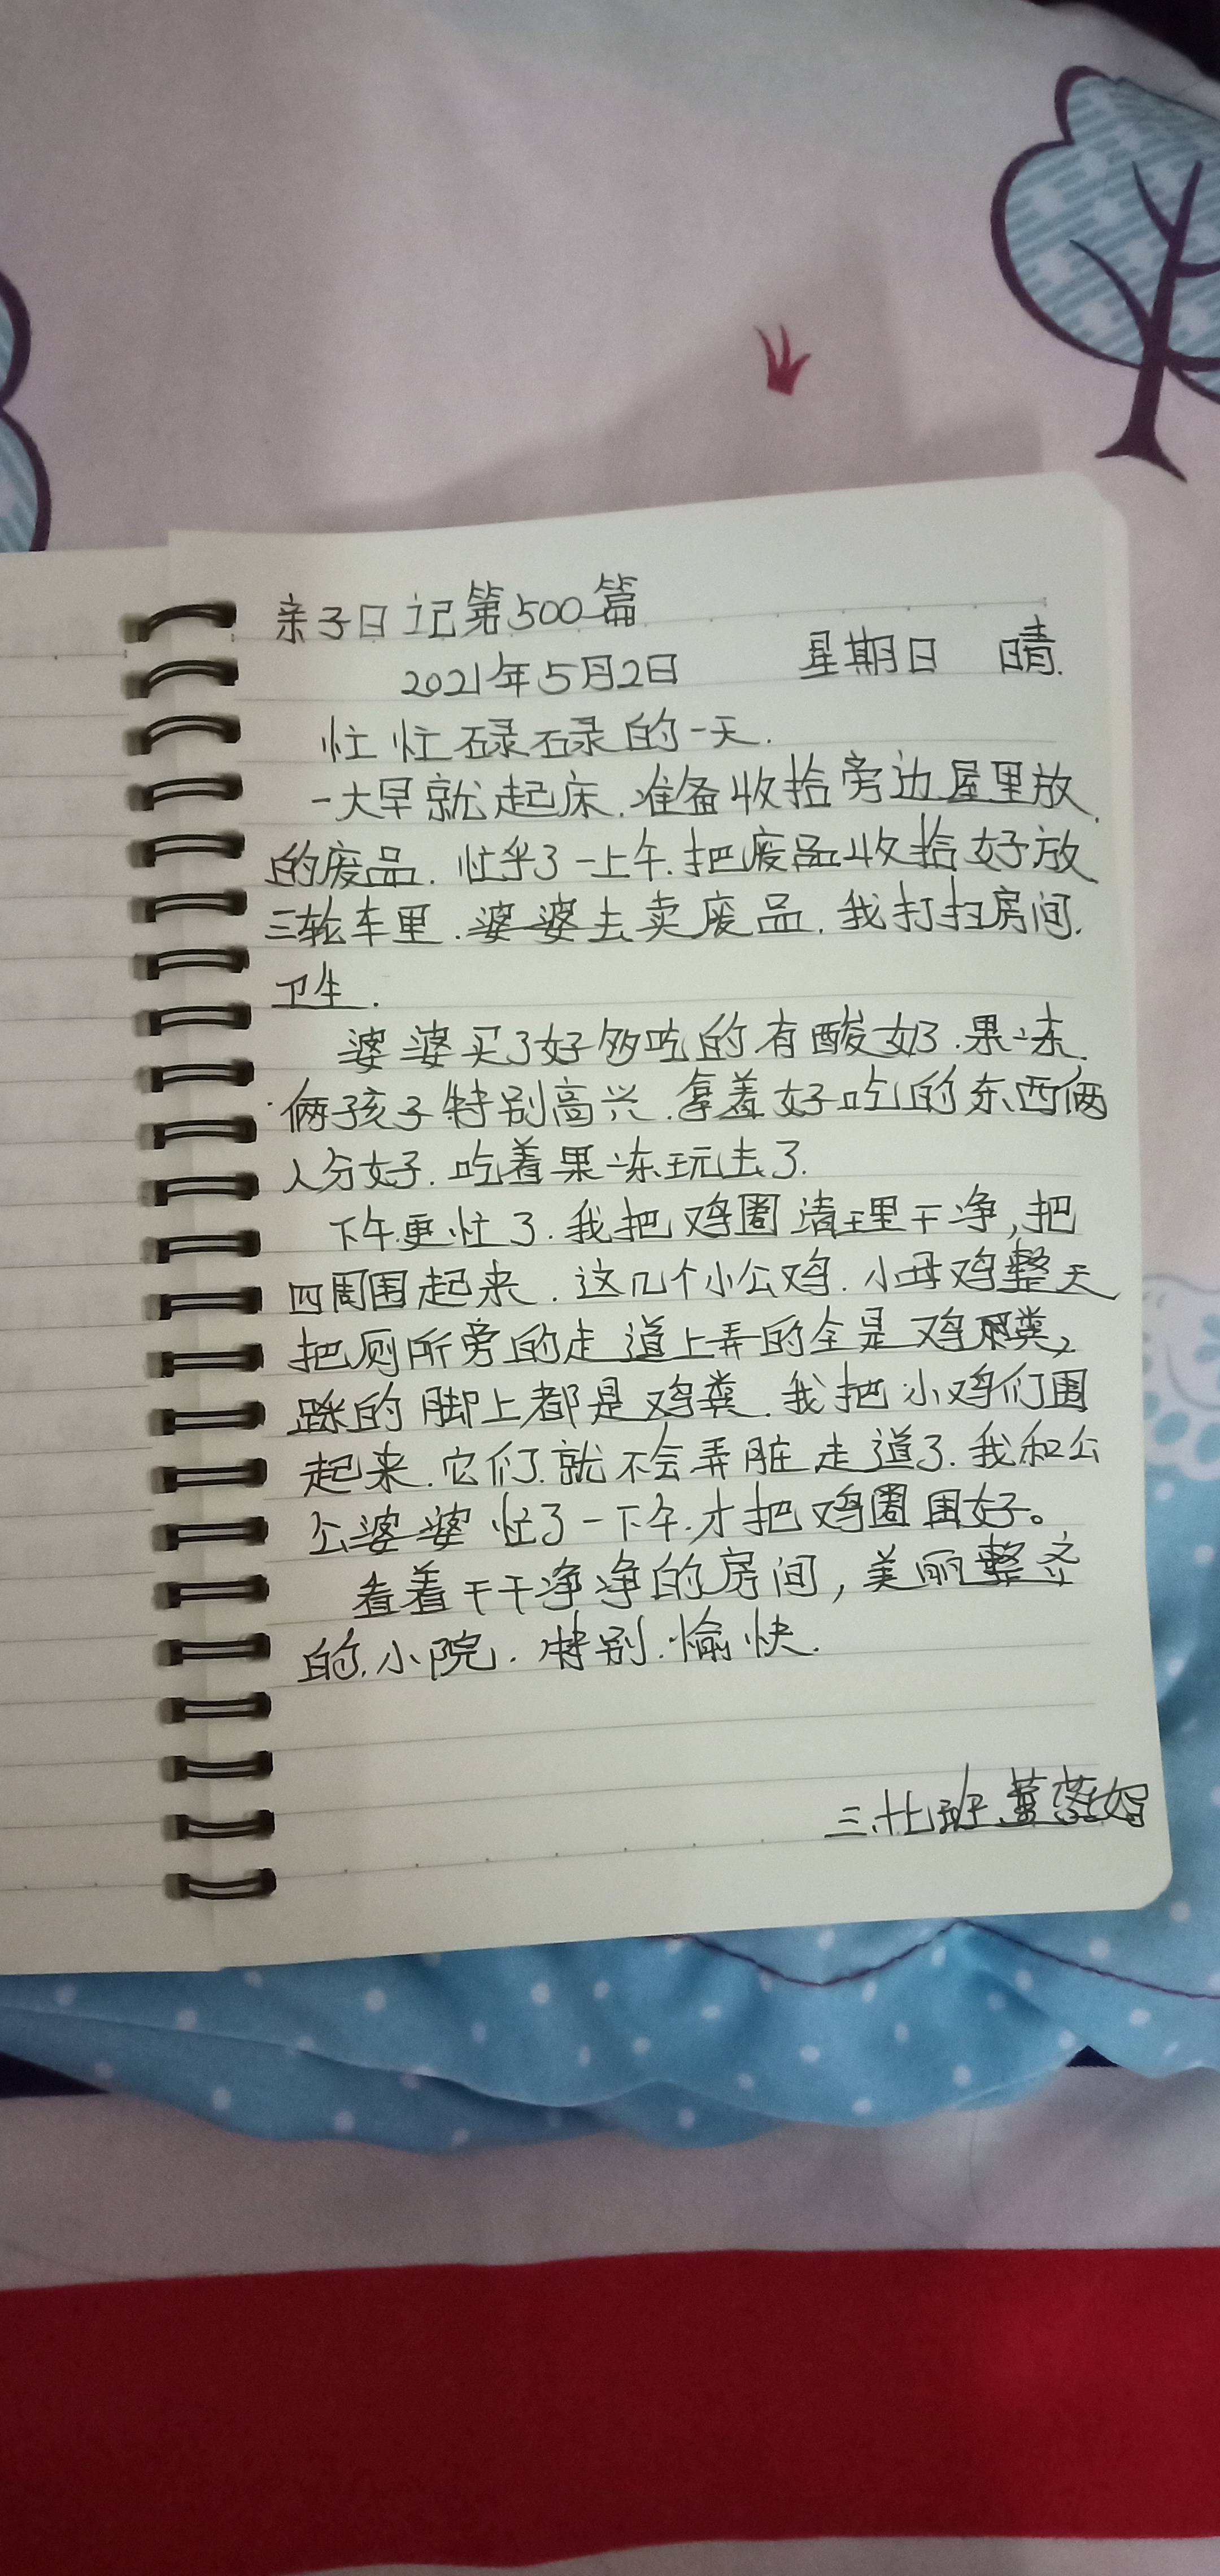 亲子日记第500篇
2021年5月2日 星期日 晴.
忙忙碌碌的一天.
一大早就起床.准备收拾旁边屋里放
的废品.忙乎了一上午.把废品收拾好放
三轮车里.婆婆去卖废品.我打扫房间.
卫生.
婆婆买了好多吃的.有酸奶.果冻.
俩孩子特别高兴.拿着好吃的东西俩
人分好.吃着果冻玩去了.
下午更忙了.我把鸡圈清理干净,把
四周围起来.这几个小公鸡.小母鸡整天
把厕所旁的走道上弄的全是鸡粪,
踩的脚上都是鸡粪.我把小鸡们围
起来.它们.就不会弄脏走道了.我和公
公婆婆忙了一下午.才把鸡圈围好。
看着干干净净的房间,美丽整齐
的.小院.特别.愉快.
三.七班